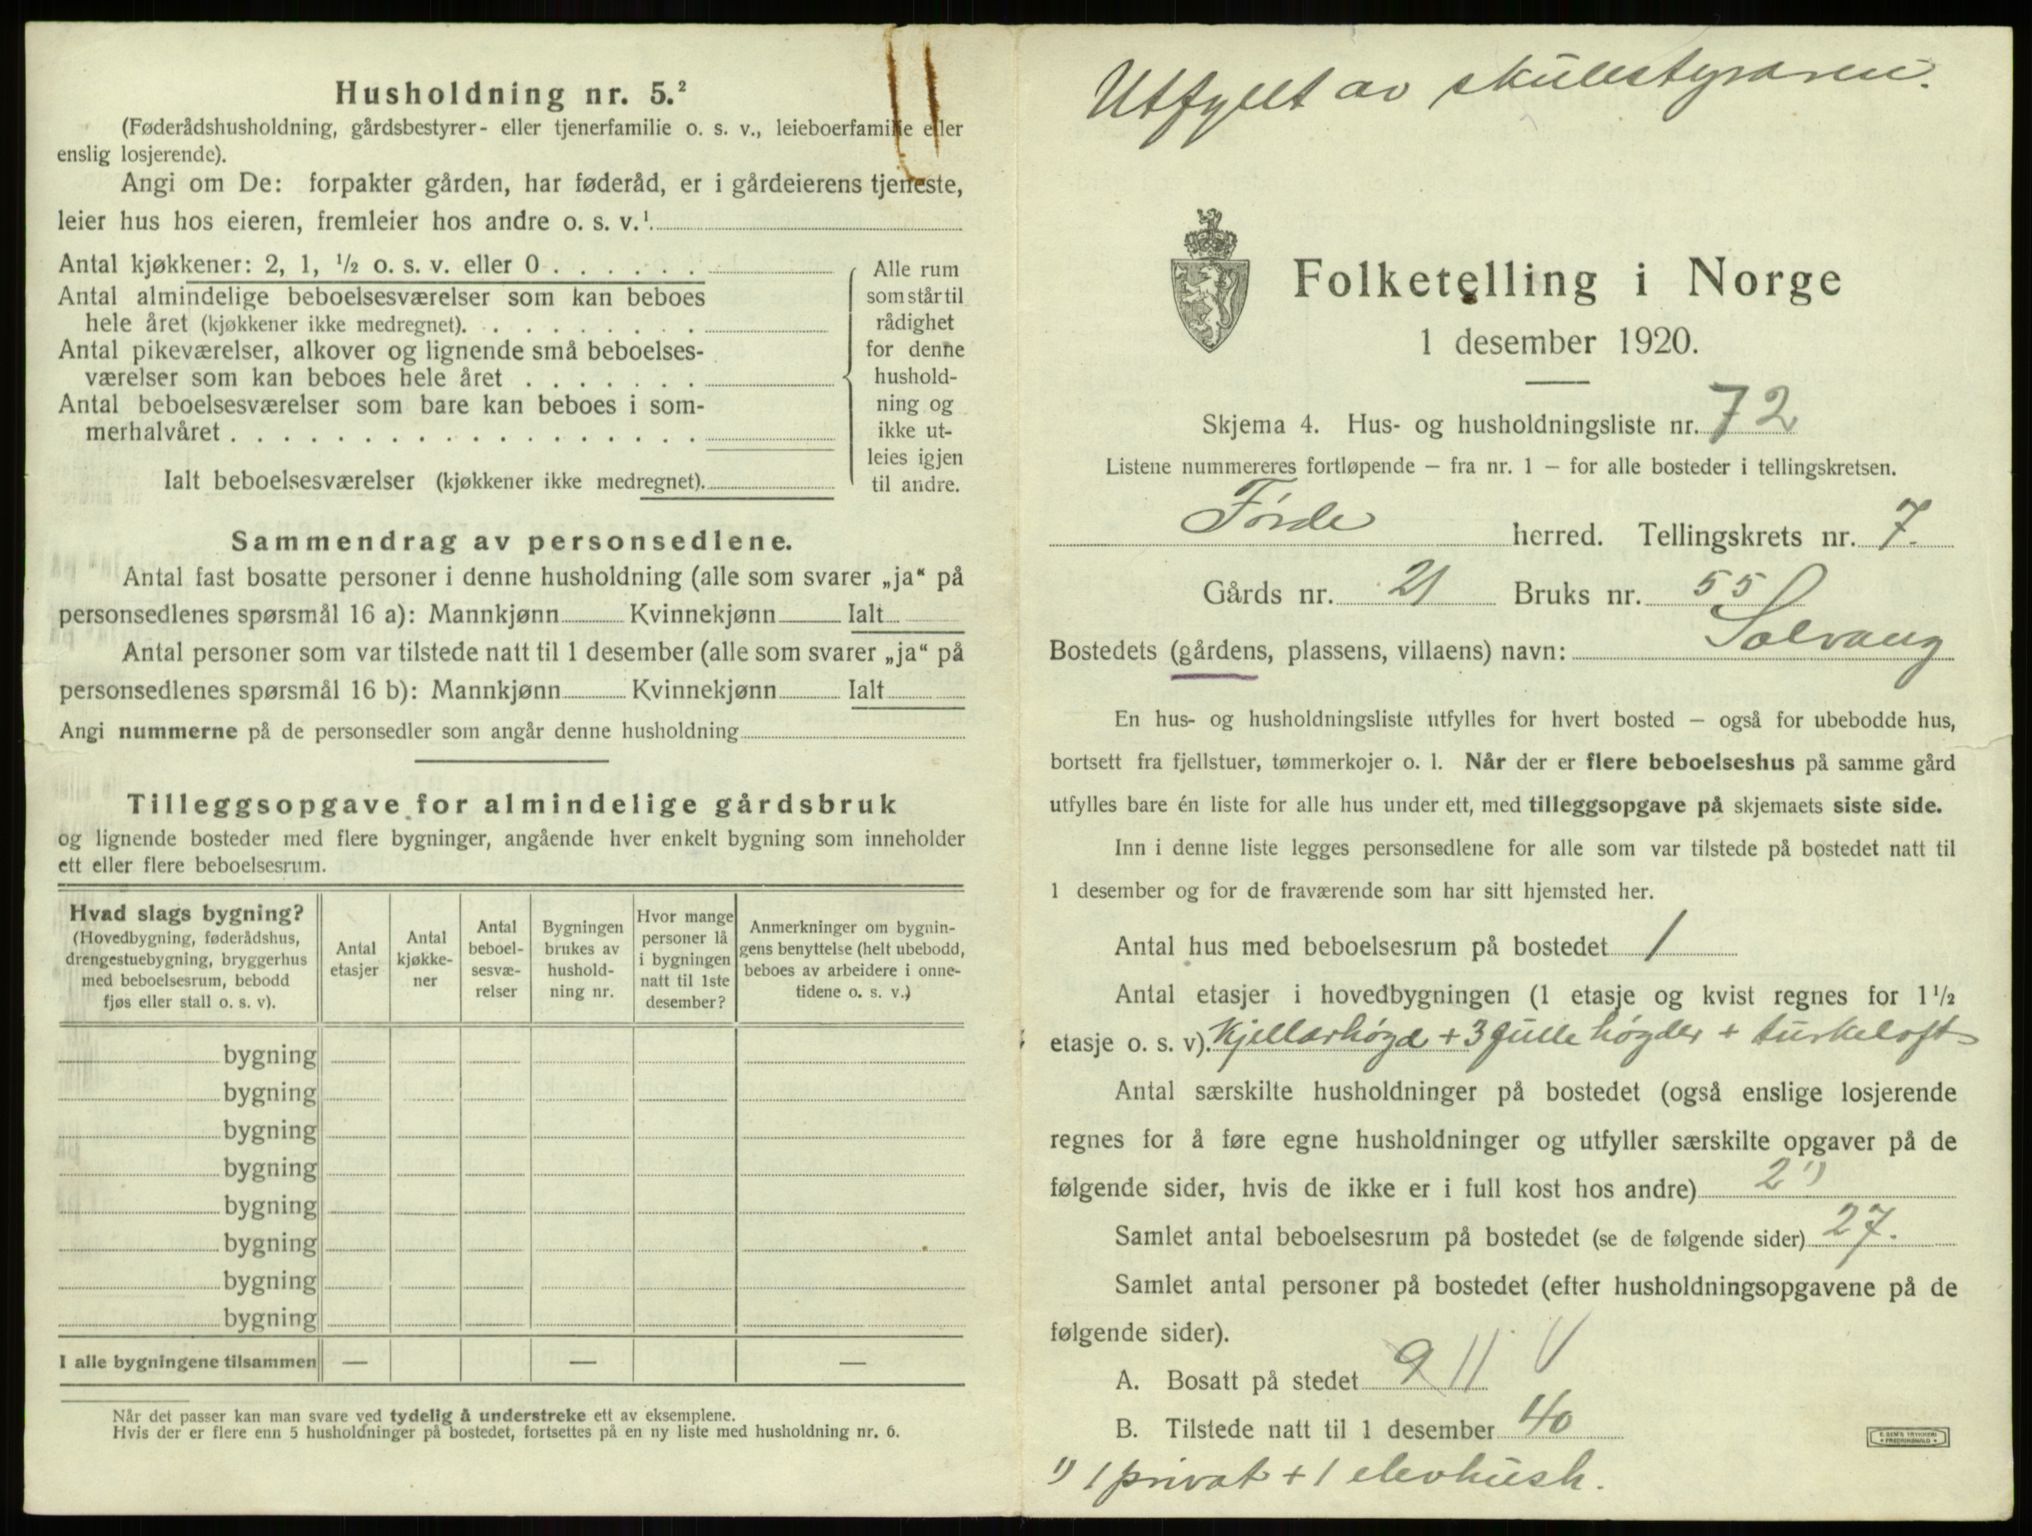 Husholdning nr. 5.²
(Føderådshusholdning, gårdsbestyrer- eller tjenerfamilie o. s. v., leieboerfamilie eller
enslig losjerende).
Angi om De: forpakter gården, har føderåd, er i gårdeierens tjeneste,
leier hus hos eieren, fremleier hos andre o. s. v.¹
Antal kjøkkener: 2, 1, ½ o. s. v. eller 0 . . . . . .
Antal almindelige beboelsesværelser som kan beboes
hele året (kjøkkener ikke medregnet). . . . . . . . .
Antal pikeværelser, alkover og lignende små beboelses-
værelser som kan beboes hele året . . . . . . .
Antal beboelsesværelser som bare kan beboes i som-
merhalvåret . . . . . . . . . . . . . . . . . .
Ialt beboelsesværelser (kjøkkener ikke medregnet).
Alle rum
som står til
rådighet
for denne
hushold-
ning og
ikke ut-
leies igjen
til andre.
Sammendrag av personsedlene.
Antal fast bosatte personer i denne husholdning (alle som svarer „ja“ på
personsedlenes spørsmål 16 a): Mannkjønn Kvinnekjønn Ialt
Antal personer som var tilstede natt til 1 desember (alle som svarer „ja“ på
personsedlenes spørsmål 16 b): Mannkjønn Kvinnekjønn Ialt
Angi nummerne på de personsedler som angår denne husholdning
Tilleggsopgave for almindelige gårdsbruk
og lignende bosteder med flere bygninger, angående hver enkelt bygning som inneholder
ett eller flere beboelsesrum.
Hvad slags bygning?
(Hovedbygning, føderådshus,
drengestuebygning, bryggerhus
med beboelsesrum, bebodd
fjøs eller stall o. s. v).
Antal
etasjer
Antal
kjøkke-
ner
Antal
beboel-
sesvæ-
relser
Bygningen
brukes av
hushold-
ning nr.
Hvor mange
personer lå
i bygningen
natt til 1ste
desember?
Anmerkninger om bygnin-
gens benyttelse (helt ubebodd,
beboes av arbeidere i onne-
tidene o. s. v.)
bygning
bygning
bygning
bygning
bygning
bygning
bygning
bygning
I alle bygningene tilsammen — — —
Når det passer kan man svare ved tydelig å understreke ett av eksemplene.
Hvis der er flere enn 5 husholdninger på bostedet, fortsettes på en ny liste med husholdning nr. 6.
Utfyllt av skulestyraren.
Folketelling i Norge
1 desember 1920.
Skjema 4. Hus- og husholdningsliste nr. 72
Listene nummereres fortløpende – fra nr. 1 – for alle bosteder i tellingskretsen.
Førde herred. Tellingskrets nr. 7.
Gårds nr. 21 Bruks nr. 55
Bostedets (gårdens, plassens, villaens) navn: Solvang
En hus- og husholdningsliste utfylles for hvert bosted – også for ubebodde hus,
bortsett fra fjellstuer, tømmerkojer o. l. Når der er flere beboelseshus på samme gård
utfylles bare én liste for alle hus under ett, med tilleggsopgave på skjemaets siste side.
Inn i denne liste legges personsedlene for alle som var tilstede på bostedet natt til
1 desember og for de fraværende som har sitt hjemsted her.
Antal hus med beboelsesrum på bostedet 1
Antal etasjer i hovedbygningen (1 etasje og kvist regnes for 1½
etasje o. s. v). Kjellarhøgd + 3 fulle høgder + turkeloft
Antal særskilte husholdninger på bostedet (også enslige losjerende
regnes for å føre egne husholdninger og utfyller særskilte opgaver på de
følgende sider, hvis de ikke er i full kost hos andre) 2 ¹⁾
Samlet antal beboelsesrum på bostedet (se de følgende sider) 27.
Samlet antal personer på bostedet (efter husholdningsopgavene på de
følgende sider).
A. Bosatt på stedet 9 11 V
B. Tilstede natt til 1 desember 40
E. SEM'S TRYKKERI
FREDRIKSHALD
¹⁾ 1 privat + 1 elevhush.